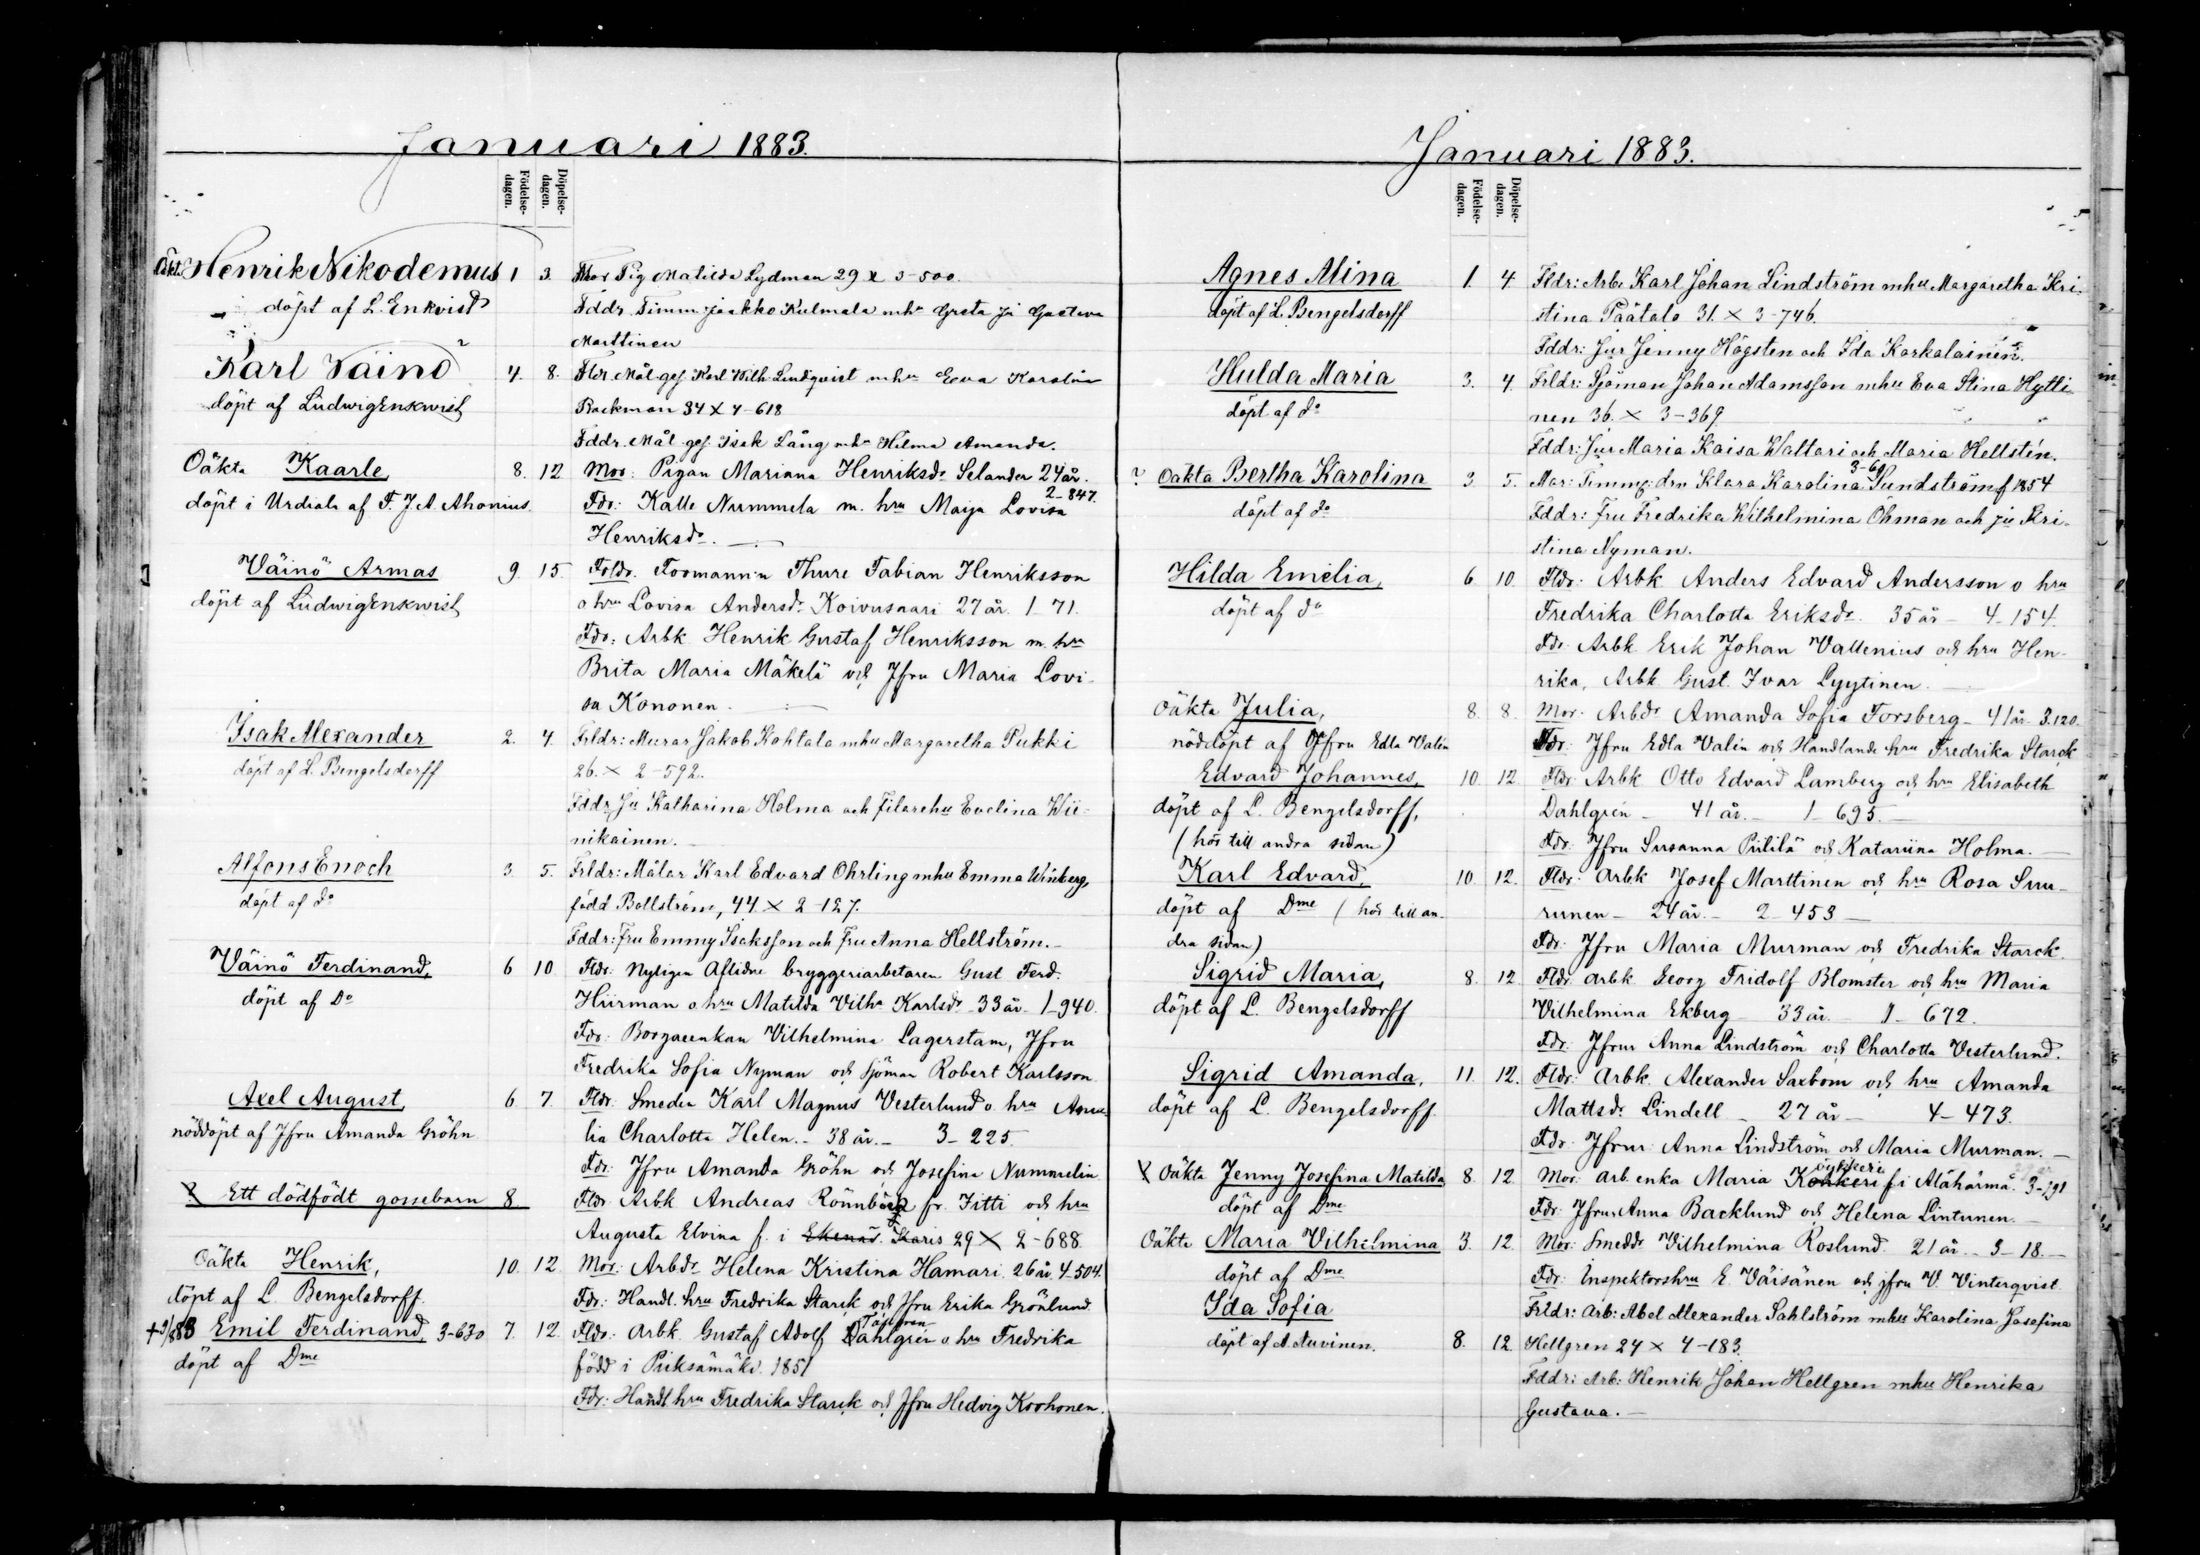 Januari 1883.
Födelse-dagen.
Döpelse-dagen.
Oäkt. Henrik Nikodemus 1 3. Mor Pig Matilda Lydman 29 x 3-500.
döpt af L. Enkvist Fddr Timm Jaakko Kulmala mh Greta Ju Gustava
Marttinen
Karl Väinö 4. 8. Fldr. Mål. ges. Karl Wilh. Lindqvist mhu Eva Karolin
döpt af Ludwig Enkwist Backman 34 x 4-618
Fddr. Mål ges. Isak Lång mh Hilma Amanda.
Oäkta Kaarle 8. 12 Mor: Pigan Mariana Henriksdr Selander 24 år.
2-847.
döpt i Urdiala af F. J. A. Ahonius. Fdr: Kalle Nummela m. hru Maija Lovisa
Henriksdr.
Väinö Armas 9. 15. Frldr. Foormann:n Thure Fabian Henriksson
döpt af Ludwig Enkwist o hru Lovisa Andersdr Koivusaari 27 år. 1-71.
Fdr: Arbk. Henrik Gustaf Henriksson m. hru
Brita Maria Mäkelä och Jfru Maria Lovi-
sa Kononen.
Isak Alexander 2. 4. Frldr: Murar Jakob Kohtala mhu Margaretha Pukki
döpt af L. Bengelsdorff 26. x 2-592.
Fddr. Ju Katharina Holma och Filarehu Evelina Wii-
nikainen.
Alfons Enoch 3. 5. Frldr: Målar Karl Edvard Ohrling mhu Emma Winberg,
döpt af do född Bollström, 44 x 2-127.
Fddr: Fru Emmy Isaksson och Fru Anna Hellström.
Väinö Ferdinand, 6 10 Fldr: Nyligen Aflidne bryggeriarbetaren Gust Ferd.
döpt af Do Hiirman o hru Matilda Vilha Karlsdr 33 år 1-940.
Fdr: Borgaeenkan Vilhelmina Lagerstam, Jfru
Fredrika Sofia Nyman och Sjöman Robert Karlsson
Axel August, 6. 7. Fldr. Smeden Karl Magnus Vesterlund o hru Ama-
nöddöpt af Jfru Amanda Gröhn lia Charlotta Helen. - 38 år. - 3-225.
Fdr: Jfru Amanda Gröhn och Josefina Nummelin
Ett dödfödt gossebarn 8. Fldr Arbk Andreas Rönnbäck fr. Iitti och hru
Augusta Elvina f. i Ekenäs Karis 29 x 2-688.
Oäkta Henrik, 10. 12. Mor: Arbdr Helena Kristina Hamari. 26 år. 4-504.
döpt af L. Bengelsdorff. Fdr: Handl. hru Fredrika Starck och Jfru Erika Grönlund.
Emil Ferdinand, 3-630 7. 12. Fldr. Arbk. Gustaf Adolf Dahlgren o hru Fredrika
döpt af Dme född i Pieksämäki. 1851
Fdr: Handl hru Fredrika Starck och Jfru Hedvig Korhonen.
Januari 1883.
Födelse-dagen.
Döpelse-dagen.
Agnes Alina 1. 4 Fldr: Arbr Karl Johan Lindström mhu Margaretha Kri-
döpt af L. Bengelsdorff stina Päätalo 31. x 3-746.
Fddr: Jur Jenny Högsten och Ida Karkalainen.
Hulda Maria 3. 4. Frldr: Sjöman Johan Adamsson mhu Eva Stina Hytti-
döpt af do nen 36. x 3-369
Fddr: Jur Maria Kaisa Wallari och Maria Hellstén.
3-69
? Oäkta Bertha Karolina 3 5. Mor: Timmg. drn Klara Karolina Sundström f 1854
döpt af do Fddr: Fru Fredrika Wilhelmina Öhman och ju Kri-
stina Nyman.
Hilda Emelia, 6. 10. Fldr: Arbk Anders Edvard Andersson o hru
döpt af do Fredrika Charlotta Eriksdr. 35 år - 4-154.
Fdr Arbk Erik Johan Vallenius och hru Hen-
rika, Arbk. Gust. Ivar Lyytinen.
Oäkta Julia, 8. 8. Mor. Arbdr Amanda Sofia Forsberg - 41 år 3.120.
nöddöpt af Jfru Edla Valin Fdr: Jfru Edla Valin och Handlande hru Fredrika Starck
Edvard Johannes, 10. 12. Fldr Arbk Otto Edvard Lamberg och hru Elisabeth
döpt af L. Bengelsdorff, Dahlgren - 41 år. - 1-695.
(hör till andra sidan) Fdr. Jfru Susanna Piililä och Katariina Holma.
Karl Edvard, 10. 12. Fldr: Arbk Josef Marttinen och hru Rosa Suu-
döpt af Dme (hör till an- runen - 24 år. - 2-453
dra sidan) Fdr: Jfru Maria Murman och Fredrika Starck.
Sigrid Maria, 8. 12 Fldr Arbk Georg Fridolf Blomster och hru Maria
döpt af L. Bengelsdorff Vilhelmina Ekberg 33 år. 1-672.
Fdr: Jfrur Anna Lindström och Charlotta Vesterlund.
Sigrid Amanda, 11. 12. Fldr: Arbk. Alexander Saxbom och hru Amanda
döpt af L. Bengelsdorff. Mattsdr. Lindell - 27 år - 4-473.
Fdr. Jfrur Anna Lindström och Maria Murman. -
X Oäkta Jenny Josefina Matilda 8. 12. Mor. Arb. enka Maria f i Alahärmä. 3-191
döpt af Dme Fdr: Jfrur Anna Backlund och Helena Lintunen.
Oäkta Maria Vilhelmina 3. 12. Mor: Smeddr Vilhelmina Roslund. 21 år - 3-18. -
döpt af Dme Fdr: Inspektorshru E. Väisänen och jfru V. Vinterqvist.
Ida Sofia Frldr: Arb: Abel Alexander Sahlström mhu Karolina Josefina
döpt af A. Auvinen. 8. 12. Hellgren 24 x 4-183.
Fddr: Arb: Henrik Johan Hellgren mhu Henrika
Gustava. -